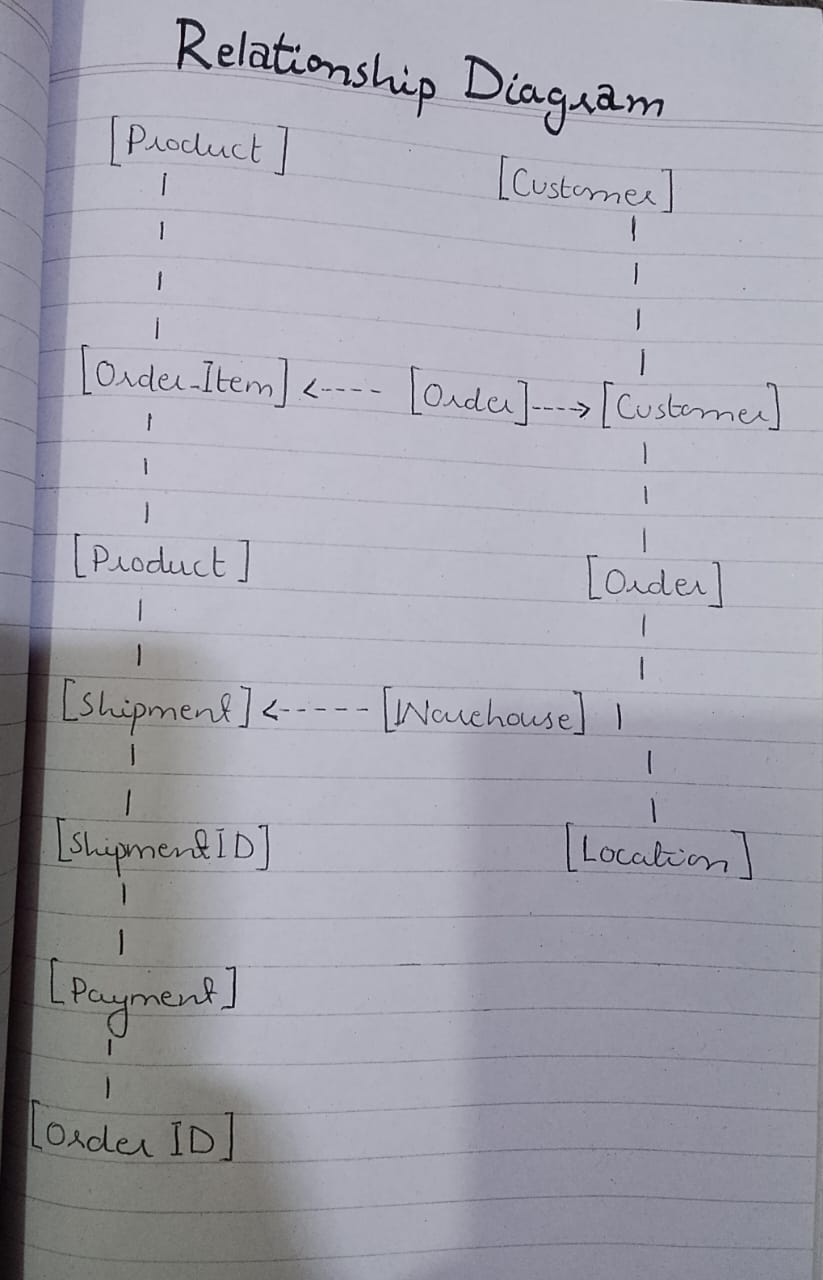 Relationship Diagram
[Product]
[Customer]
[Order_Item] <---- [Order]----> [Customer]
[Product]
[Order]
[Shipment] <----- [Warehouse]
[Shipment ID]
[Location]
[Payment]
[Order ID]